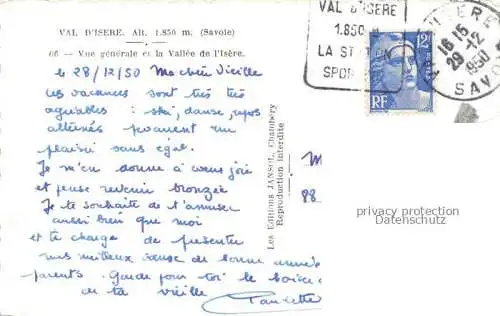 VAL D'ISERE. Alt. 1.850 m. (Savoie)
66 — Vue générale et la Vallée de l'Isère.
le 28/12/50 Ma chère Vieille
Les vacances sont très très
agréables : ski, danse, repos
alternés procurent un
plaisir sans égal.
Je m'en donne à coeur joie
et pense revenir bronzée
Je te souhaite de t'amuser
aussi bien que moi
et te charge de présenter
mes meilleurs voeux de bonne année
parents. Garde pour toi le
de ta vieille Paulette
Les Editions JANSOL, Chambéry
Reproduction interdite
VAL D'ISERE
1.850 m
LA STATION
SPOR
12F
RF
16 15
29-12
1950
SAVOIE
M
88
privacy protection
Datenschutz